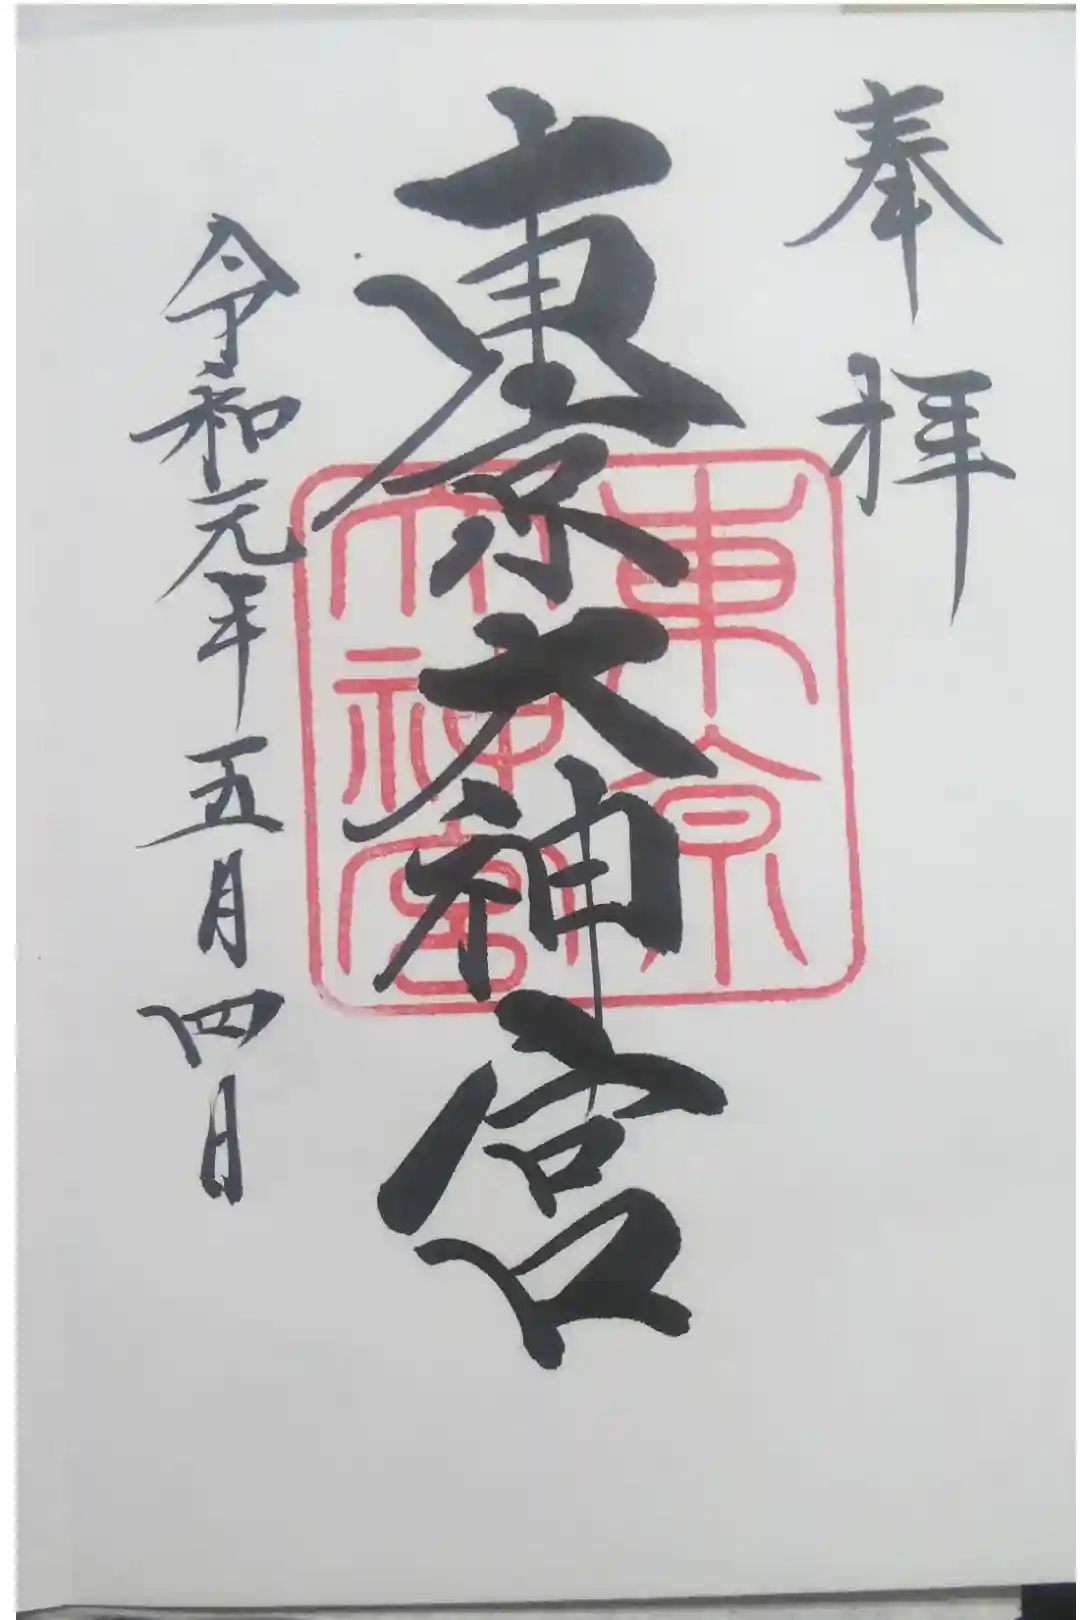 奉拝
東京大神宮
東京大神宮
令和元年五月四日